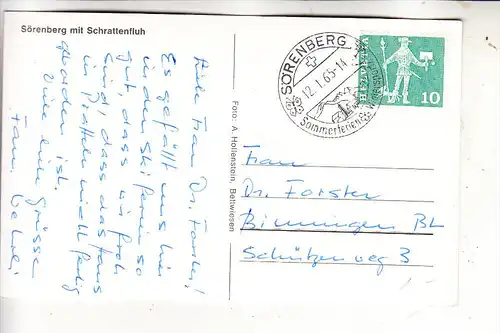 Sörenberg mit Schrattenfluh
Liebe Frau Dr. Forster!
Es gefällt uns hier
in den Skiferien so
gut, dass wir froh
sind, dass das Haus
in Pratteln nicht fertig
geworden ist.
Viele liebe Grüsse
Fam.
Foto: A. Hollenstein, Bettwiesen
SÖRENBERG
12.1.65-14
Sommerferien &
HELVETIA
10
Frau
Dr. Forster
Binningen BL
Schützenweg 3